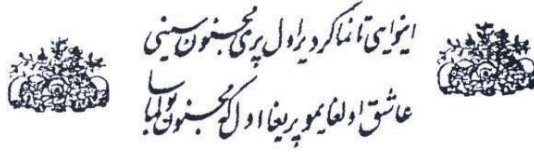 اینوایی تانما کر دیر اول پری مجنون سینی
عاشق اولغایمو پریغا اول که مجنون بولماسا